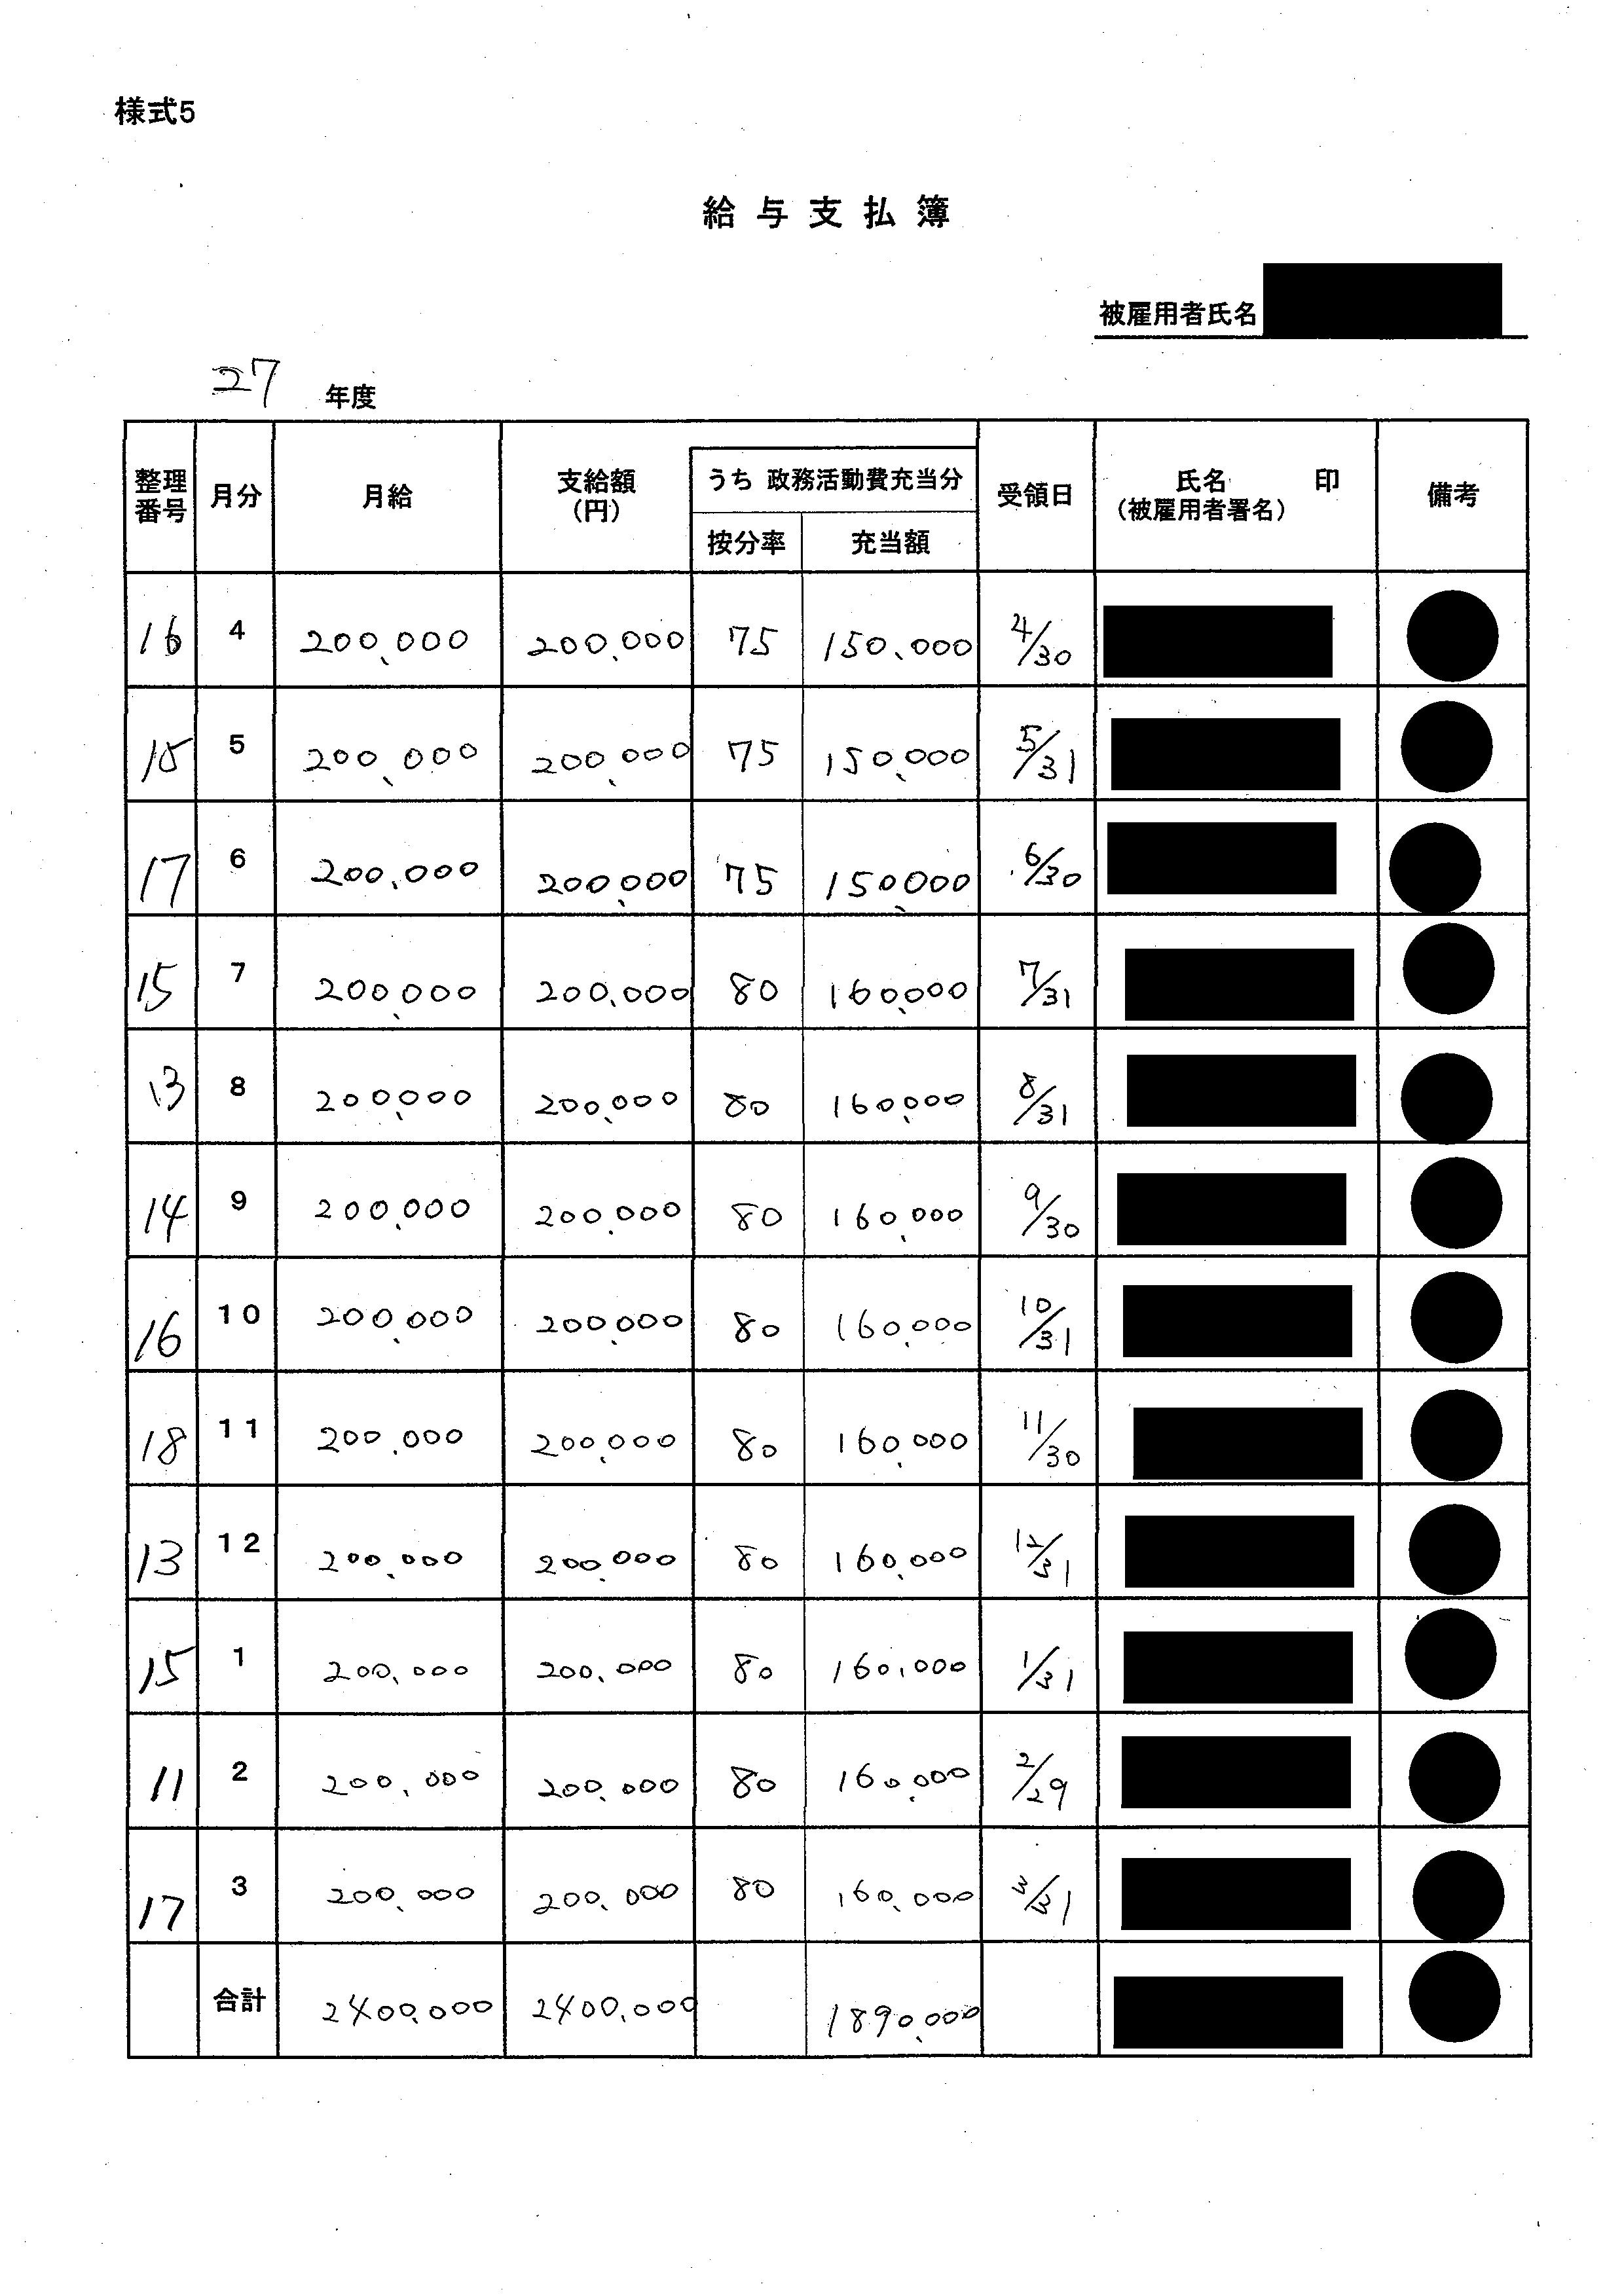 様式5
給与支払簿
被雇用者氏名
27 年度
整理番号 月分 月給 支給額(円) うち 政務活動費充当分 按分率 充当額 受領日 氏名 印 (被雇用者署名) 備考
16 4 200,000 200,000 75 150,000 4/30
15 5 200,000 200,000 75 150,000 5/31
17 6 200,000 200,000 75 150,000 6/30
15 7 200,000 200,000 80 160,000 7/31
13 8 200,000 200,000 80 160,000 8/31
14 9 200,000 200,000 80 160,000 9/30
16 10 200,000 200,000 80 160,000 10/31
18 11 200,000 200,000 80 160,000 11/30
13 12 200,000 200,000 80 160,000 12/31
15 1 200,000 200,000 80 160,000 1/31
11 2 200,000 200,000 80 160,000 2/29
17 3 200,000 200,000 80 160,000 3/31
合計 2400,000 2400,000 1890,000